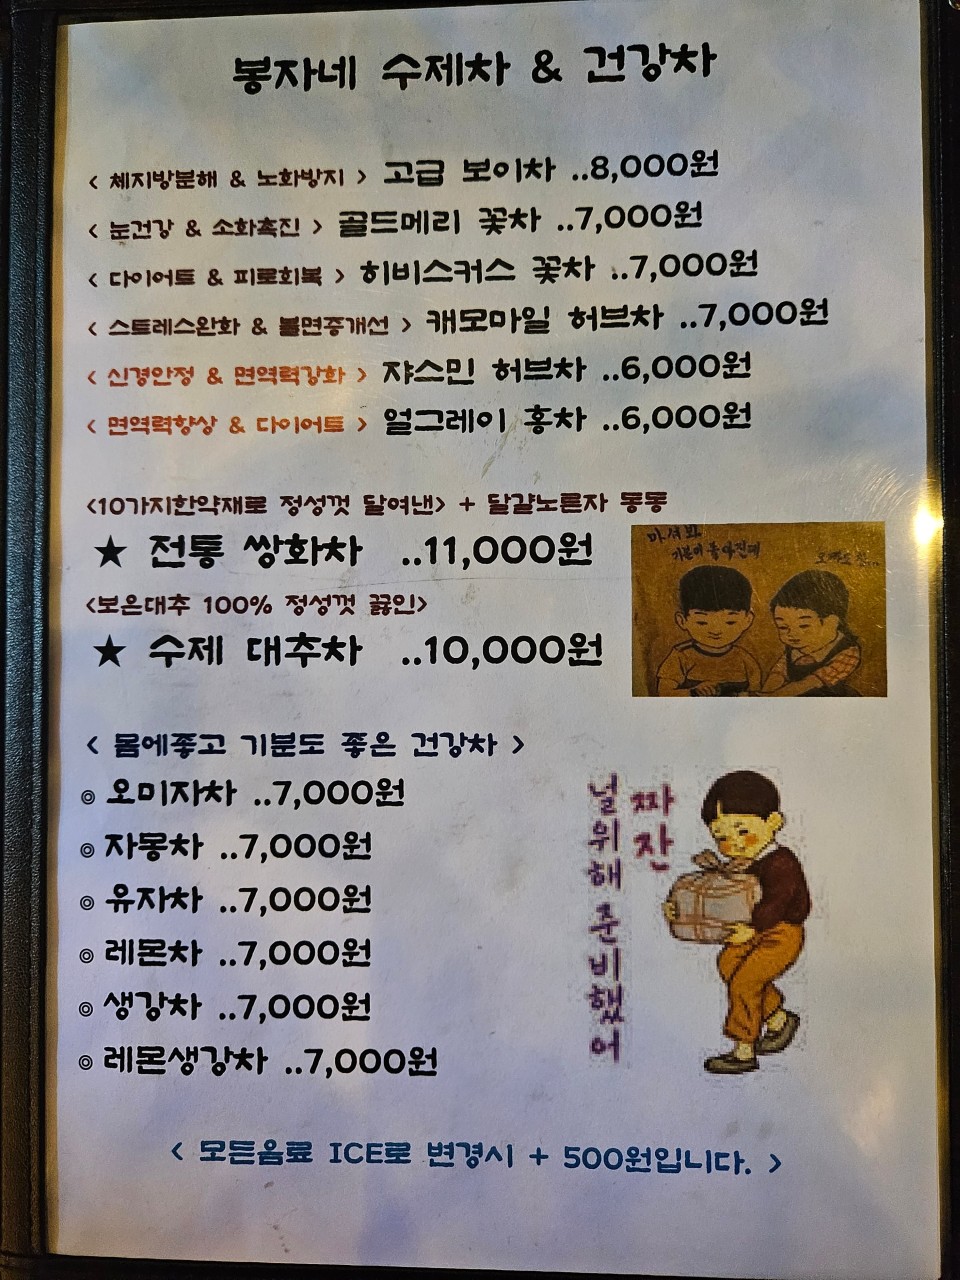 봉자네 수제차 & 건강차
< 체지방분해 & 노화방지 > 고급 보이차 ..8,000원
< 눈건강 & 소화촉진 > 골드메리 꽃차 ..7,000원
< 다이어트 & 피로회복 > 히비스커스 꽃차 ..7,000원
< 스트레스완화 & 불면증개선 > 캐모마일 허브차 ..7,000원
< 신경안정 & 면역력강화 > 쟈스민 허브차 ..6,000원
< 면역력향상 & 다이어트 > 얼그레이 홍차 ..6,000원
<10가지한약재로 정성껏 달여낸> + 달걀노른자 동동
★ 전통 쌍화차 ..11,000원
<보은대추 100% 정성껏 끓인>
★ 수제 대추차 ..10,000원
마셔봐
기분이 좋아진데
< 몸에좋고 기분도 좋은 건강차 >
◎ 오미자차 ..7,000원
◎ 자몽차 ..7,000원
◎ 유자차 ..7,000원
◎ 레몬차 ..7,000원
◎ 생강차 ..7,000원
◎ 레몬생강차 ..7,000원
짜잔
널위해 준비했어
< 모든음료 ICE로 변경시 + 500원입니다. >